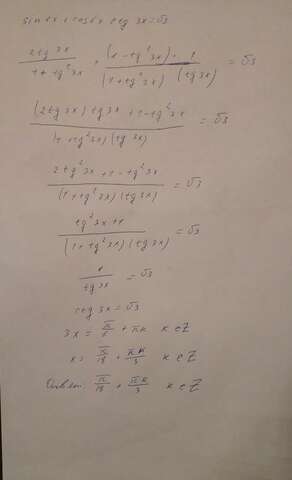 sin 6x + cos 6x ctg 3x = √3
2tg 3x / 1+tg²3x + (1-tg²3x) · 1 / (1+tg²3x) (tg3x) = √3
(2tg 3x) tg3x + 1-tg²3x / (1+tg²3x) (tg3x) = √3
2tg²3x + 1-tg²3x / (1+tg²3x) (tg3x) = √3
tg²3x+1 / (1+tg²3x) (tg3x) = √3
1 / tg3x = √3
ctg 3x = √3
3x = π/6 + πk k ∈ Z
x = π/18 + πk/3 k ∈ Z
Ответ: π/18 + πk/3 k ∈ Z